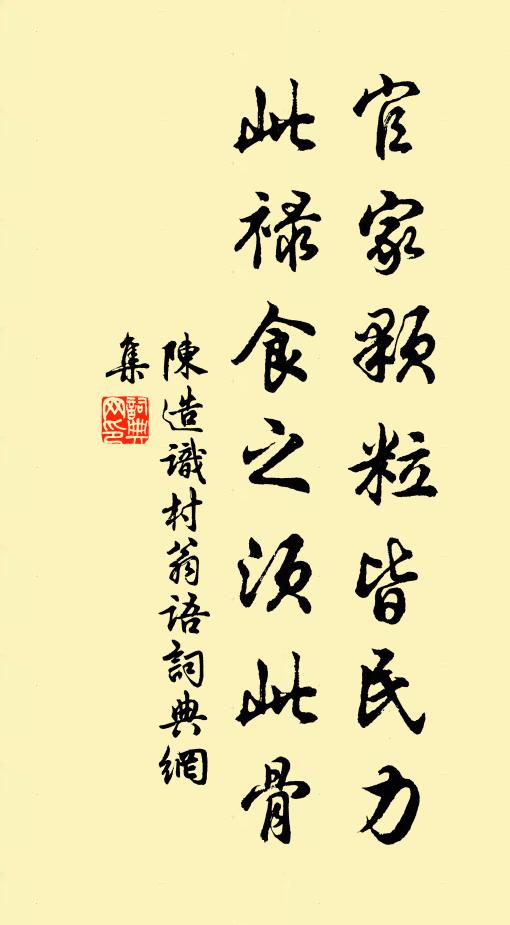 官家顆粒皆民力
此禄食之須此骨
陳造識村翁語詞典網
集
詞典網印